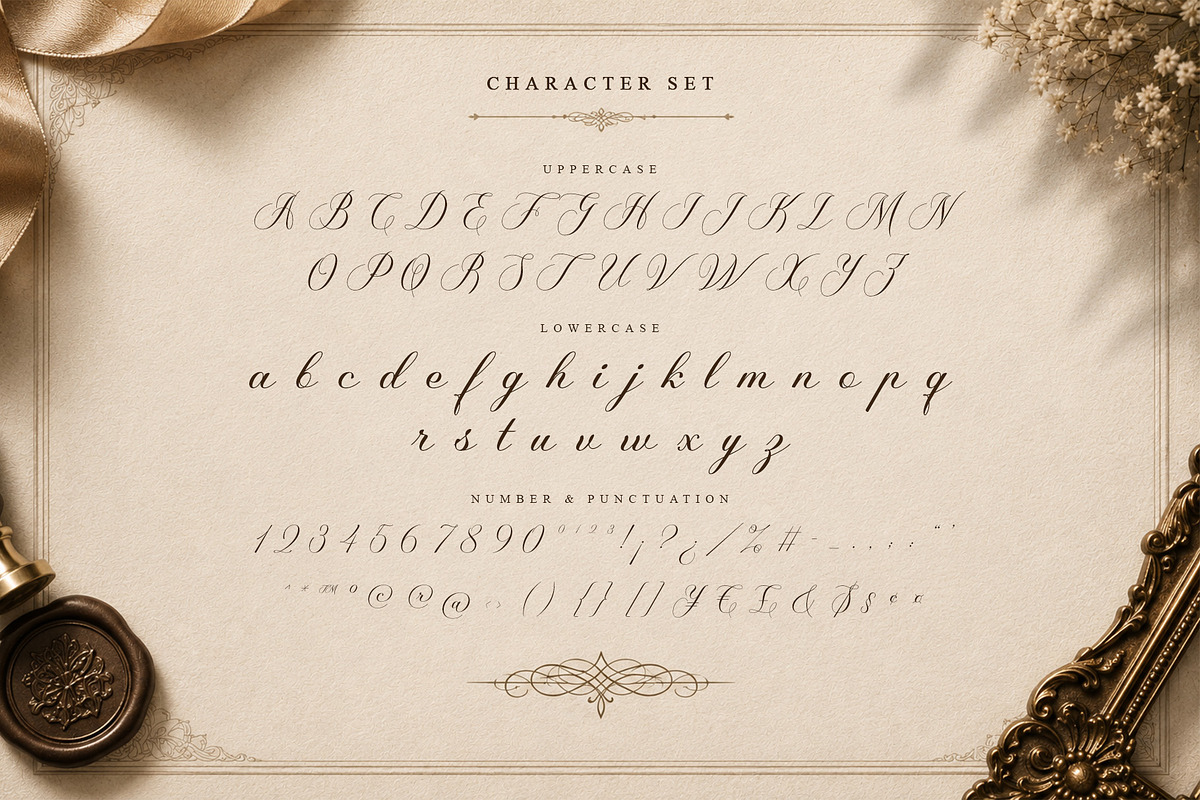 CHARACTER SET
UPPERCASE
A B C D E F G H I J K L M N
O P Q R S T U V W X Y Z
LOWERCASE
a b c d e f g h i j k l m n o p q
r s t u v w x y z
NUMBER & PUNCTUATION
1 2 3 4 5 6 7 8 9 0 ⁰ ¹ ² ³ ! ¡ ? ¿ / % # - _ . , ; : “ ’
^ * ™ º © ® @ ‹› ( ) { } [ ] ¥ € £ & $ § ¢ ¤